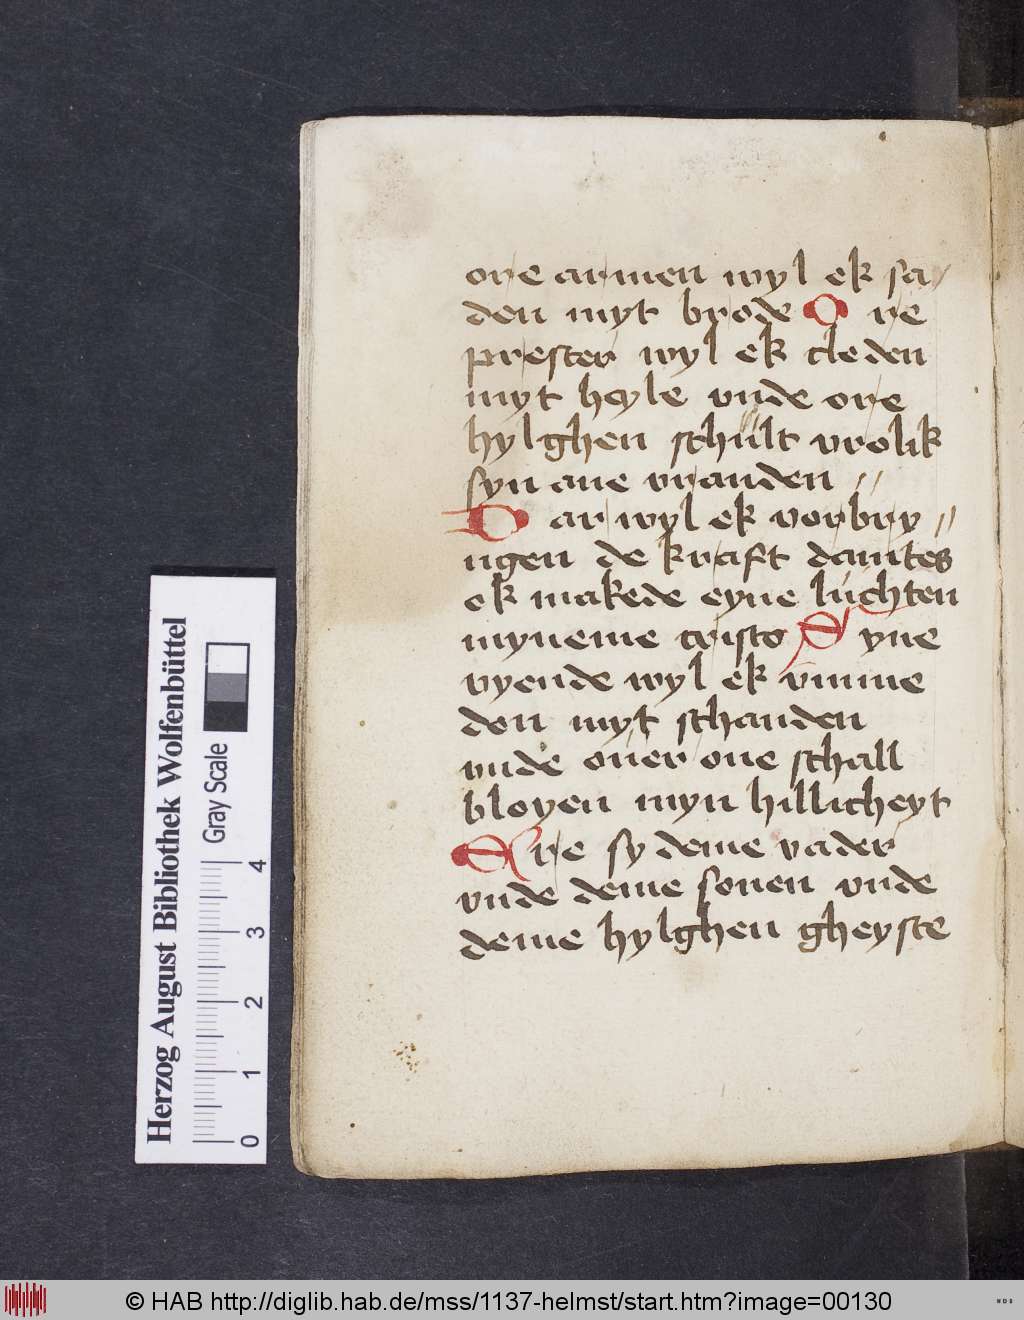 ore armen wyl ek sa/
den myt brode Ore
prester wyl ek cleden
myt heyle vnde ore
hylghen schult vrolik
syn ane vranden //
Dar wyl ek vorbry //
ngen de kraft dauites
ek makede eyne luchten
myneme cristo Syne
vyende wyl ek vmme
den myt schanden
vnde ouer one schall
bloyen myn hillicheyt
Ere sy deme vader
vnde deme sonen vnde
deme hylghen gheyste
Herzog August Bibliothek Wolfenbüttel
Gray Scale
0 1 2 3 4
© HAB http://diglib.hab.de/mss/1137-helmst/start.htm?image=00130